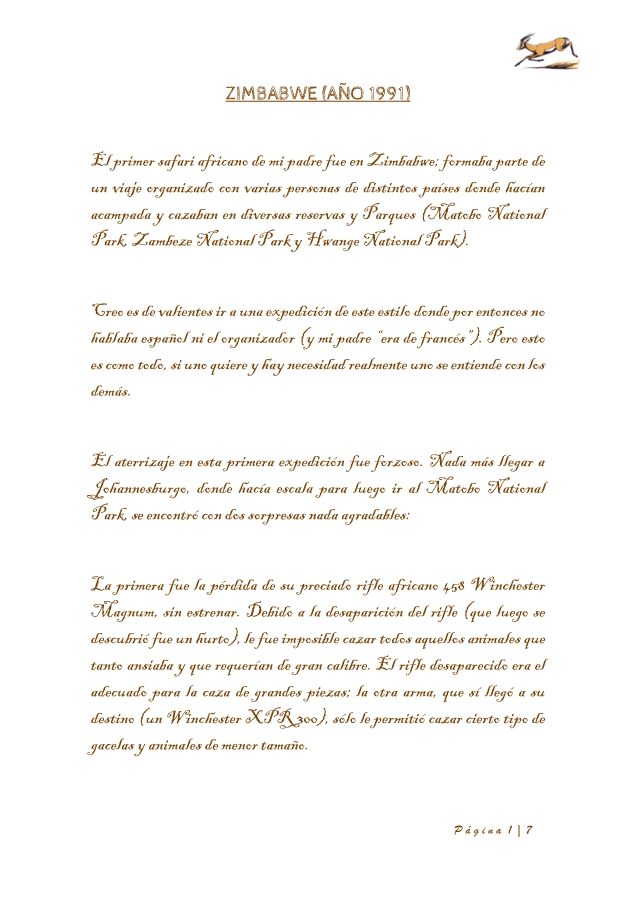 ZIMBABWE (AÑO 1991)
El primer safari africano de mi padre fue en Zimbabwe; formaba parte de
un viaje organizado con varias personas de distintos países donde hacían
acampada y cazaban en diversas reservas y Parques (Matobo National
Park, Zambeze National Park y Hwange National Park).
Creo es de valientes ir a una expedición de este estilo donde por entonces no
hablaba español ni el organizador (y mi padre "era de francés"). Pero esto
es como todo, si uno quiere y hay necesidad realmente uno se entiende con los
demás.
El aterrizaje en esta primera expedición fue forzoso. Nada más llegar a
Johannesburgo, donde hacía escala para luego ir al Matobo National
Park, se encontró con dos sorpresas nada agradables:
La primera fue la pérdida de su preciado rifle africano 458 Winchester
Magnum, sin estrenar. Debido a la desaparición del rifle (que luego se
descubrió fue un hurto), le fue imposible cazar todos aquellos animales que
tanto ansiaba y que requerían de gran calibre. El rifle desaparecido era el
adecuado para la caza de grandes piezas; la otra arma, que sí llegó a su
destino (un Winchester XPR 300), sólo le permitió cazar cierto tipo de
gacelas y animales de menor tamaño.
Página 1 | 7